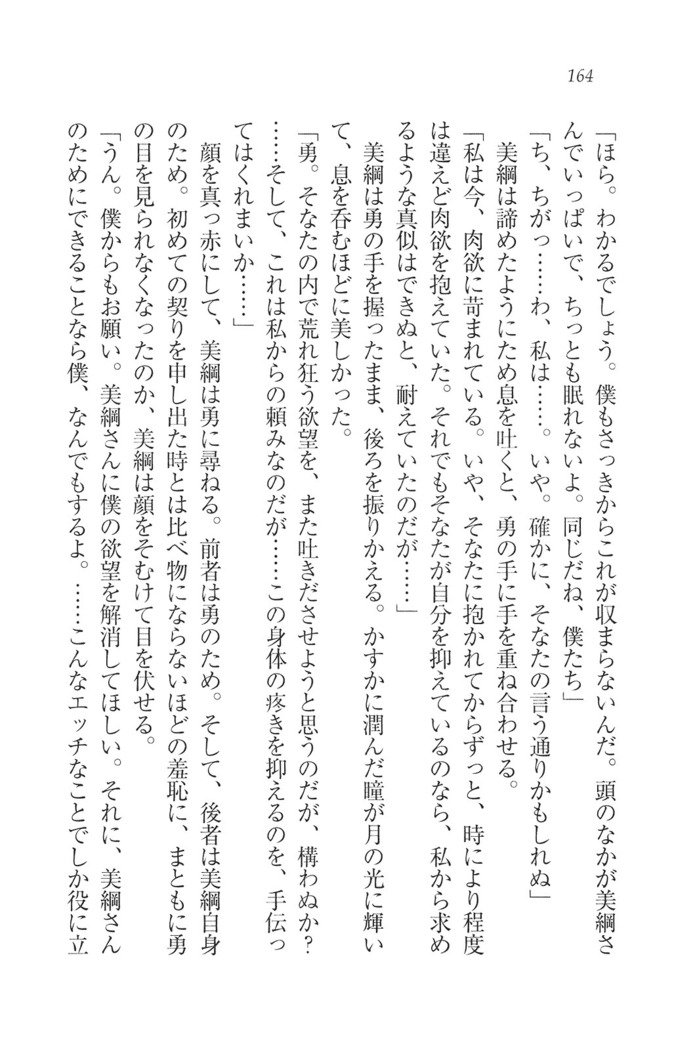 164
「ほら。わかるでしょう。僕もさっきからこれが収まらないんだ。頭のなかが美綱さ
んでいっぱいで、ちっとも眠れないよ。同じだね、僕たち」
「ち、ちがっ……わ、私は……。いや。確かに、そなたの言う通りかもしれぬ」
美綱は諦めたようにため息を吐くと、勇の手に手を重ね合わせる。
「私は今、肉欲に苛まれている。いや、そなたに抱かれてからずっと、時により程度
は違えど肉欲を抱えていた。それでもそなたが自分を抑えているのなら、私から求め
るような真似はできぬと、耐えていたのだが……」
美綱は勇の手を握ったまま、後ろを振りかえる。かすかに潤んだ瞳が月の光に輝い
て、息を呑むほどに美しかった。
「勇。そなたの内で荒れ狂う欲望を、また吐きださせようと思うのだが、構わぬか？
……そして、これは私からの頼みなのだが……この身体の疼きを抑えるのを、手伝っ
てはくれまいか……」
顔を真っ赤にして、美綱は勇に尋ねる。前者は勇のため。そして、後者は美綱自身
のため。初めての契りを申し出た時とは比べ物にならないほどの羞恥に、まともに勇
の目を見られなくなったのか、美綱は顔をそむけて目を伏せる。
「うん。僕からもお願い。美綱さんに僕の欲望を解消してほしい。それに、美綱さん
のためにできることなら僕、なんでもするよ。……こんなエッチなことでしか役に立